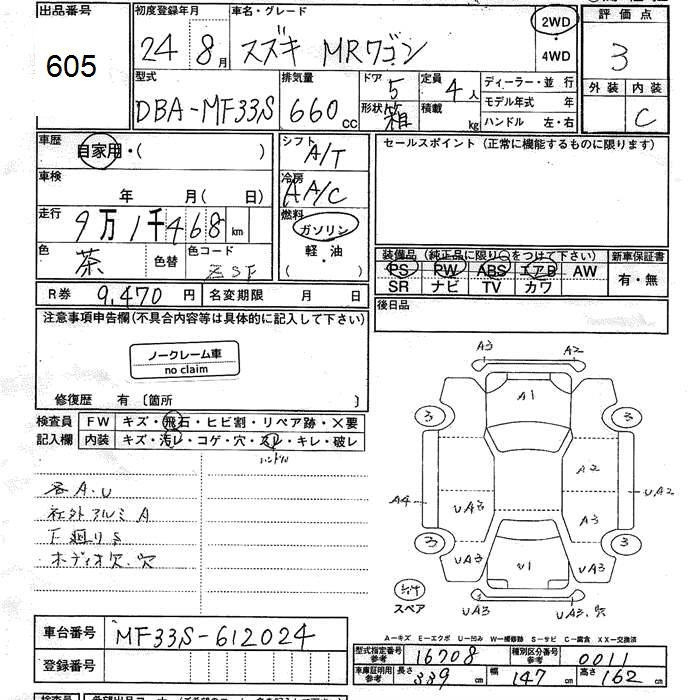 出品番号
605
初度登録年月
24年 8月
車名・グレード
スズキ MRワゴン
2WD
・
4WD
評価点
3
外装 内装
C
型式
DBA-MF33S
排気量
660cc
ドア 5
形状 箱
定員 4人
積載 kg
ディーラー・並行
モデル年式 年
ハンドル 左・右
車歴
自家用・( )
シフト
A/T
車検
年 月( 日)
冷房
AA/C
走行
9万1千468km
燃料
ガソリン
・
軽・油
色
茶
色替
色コード
セールスポイント (正常に機能するものに限ります)
装備品 (純正品に限り○をつけて下さい)
PS PW ABS エアB AW
SR ナビ TV カワ
新車保証書
有・無
R券 9,470円
名変期限 月 日
後日品
注意事項申告欄(不具合内容等は具体的に記入して下さい)
ノークレーム車
no claim
修復歴 有〔箇所 〕
検査員
記入欄
FW キズ・飛石・ヒビ割・リペア跡・×要
内装 キズ・汚レ・コゲ・穴・スレ・キレ・破レ
ハンドル
各A.U
社外アルミA
F廻りS
ボディオ欠.穴
A3 A2
A1
3 3
A2
A4 UA3 UA2
A3
3 3
UA3 U1 UA3
スペア
UA3 UA3.穴
A-キズ E-エクボ U-凹み W-補修跡 S-サビ C-腐食 XX-交換済
車台番号 MF33S-612024
登録番号
型式指定番号
参考
16708
種別区分番号
参考
0011
車庫証明用
参考
長さ 339 幅 147 高さ 162
cm